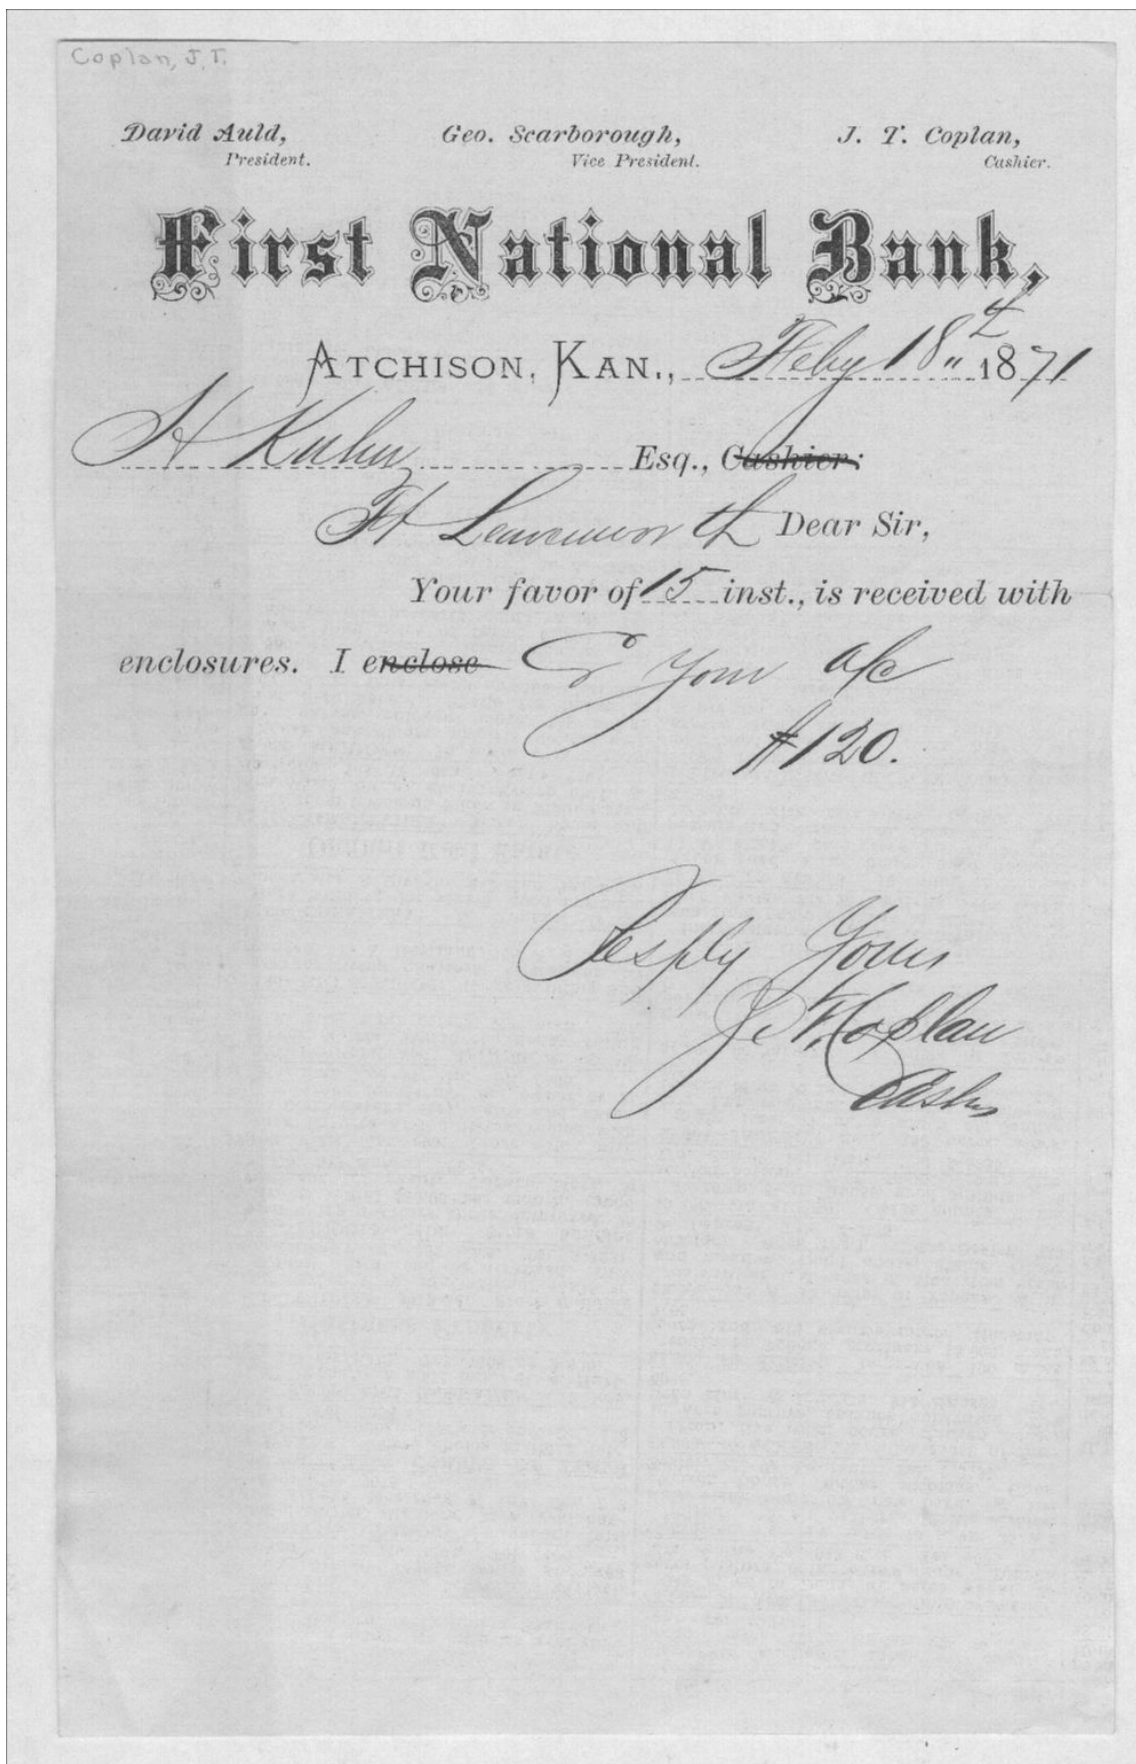 Coplan, J. T.
David Auld, Geo. Scarborough, J. T. Coplan,
President. Vice President. Cashier.
First National Bank,
Atchison, Kan., Feby 18 1871
H Kuhn Esq., Cashier:
Ft Leavenworth Dear Sir,
Your favor of 15 inst., is received with
enclosures. I enclose Cr your a/c
$120.
Resply Yours
J. T. Coplan
Cashr